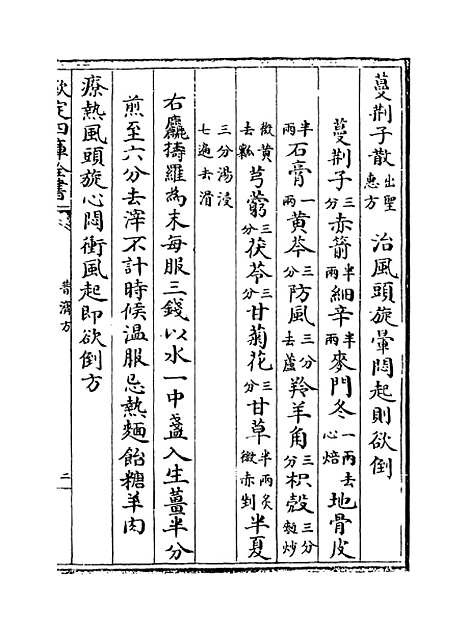 蔓荆子散出聖惠方 治風頭旋暈悶起則欲倒
蔓荆子三分赤箭半兩細辛半兩麥門冬一兩去心焙地骨皮
半兩石膏一兩黄芩三分防風三分去蘆羚羊角三分枳殻三分麩炒
微黄去瓤芎藭三分茯苓三分甘菊花三分甘草半兩炙微赤剉半夏
三分湯浸七遍去滑
右麤擣羅為末每服三錢以水一中盞入生薑半分
煎至六分去滓不計時候温服忌熱麵飴糖羊肉
療熱風頭旋心悶衝風起即欲倒方
欽定四庫全書
普濟方
二